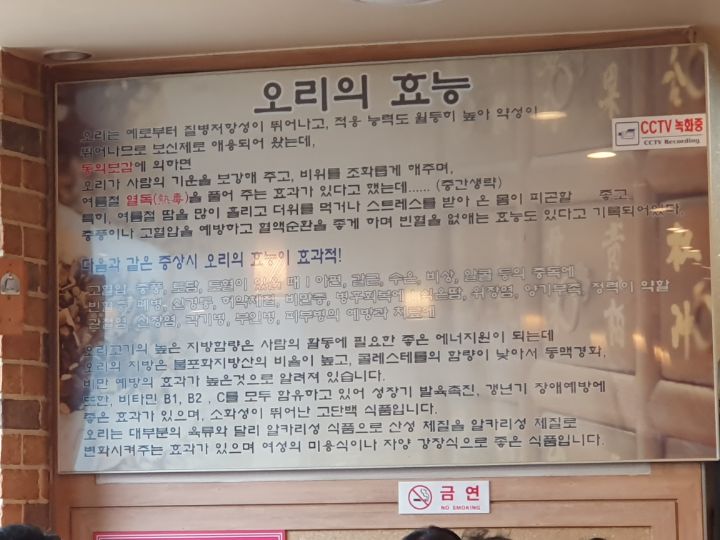 오리의 효능
오리는 예로부터 질병저항성이 뛰어나고, 적응 능력도 월등히 높아 약성이
뛰어나므로 보신제로 애용되어 왔는데,
동의보감에 의하면
오리가 사람의 기운을 보강해 주고, 비위를 조화롭게 해주며,
여름철 열독(熱毒)을 풀어 주는 효과가 있다고 했는데...... (중간생략)
특히, 여름철 땀을 많이 흘리고 더위를 먹거나 스트레스를 받아 온 몸이 피곤할 좋고,
중풍이나 고혈압을 예방하고 혈액순환을 좋게 하며 빈혈을 없애는 효능도 있다고 기록되어있다.
다음과 같은 증상시 오리의 효능이 효과적!
고혈압, 중풍, 토담, 때 | 아편, 수은, 비상, 알콜 등의 중독에
신경통, 허약체질, 비만증, 병후회복에 식은땀, 위장염, 양기부족, 정력이 약할
신장염, 각기병, 부인병, 피부병의 예방과 치료에
오리고기의 높은 지방함량은 사람의 활동에 필요한 좋은 에너지원이 되는데
오리의 지방은 불포화지방산의 비율이 높고, 콜레스테롤의 함량이 낮아서 동맥경화,
비만 예방의 효과가 높은것으로 알려져 있습니다.
또한, 비타민 B1, B2 , C를 모두 함유하고 있어 성장기 발육촉진, 갱년기 장애예방에
좋은 효과가 있으며, 소화성이 뛰어난 고단백 식품입니다.
오리는 대부분의 육류와 달리 알카리성 식품으로 산성 체질을 알카리성 체질로
변화시켜주는 효과가 있으며 여성의 미용식이나 자양 강장식으로 좋은 식품입니다.
CCTV 녹화중
CCTV Recording
금연
NO SMOKING